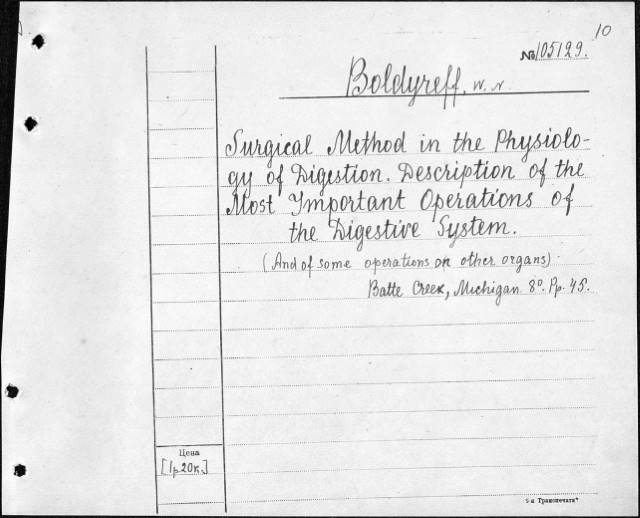 10
№ 105129.
Boldyreff, W. N.
Surgical Method in the Physiolo-
gy of Digestion. Description of the
Most Important Operations of
the Digestive System.
(And of some operations on other organs).
Batte Creek, Michigan. 8°. Pp. 45.
Цена
[1 р. 20 к.]
Транспечати"